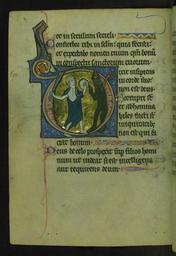 ce in seculum seculi
Confitebor tibi in sclm quia fecisti et
expectabo nomen tuum qm bonum
in conspectu sanctorum tuorum
ixit insipiens
in corde suo
non est deus
Corrupti st
et abhomina
biles facti st
in iniquitatib
non est qui fa
ciat bonum
Deus de celo prospexit sup filios homi
num ut videat si est intelligens
aut requirens deum